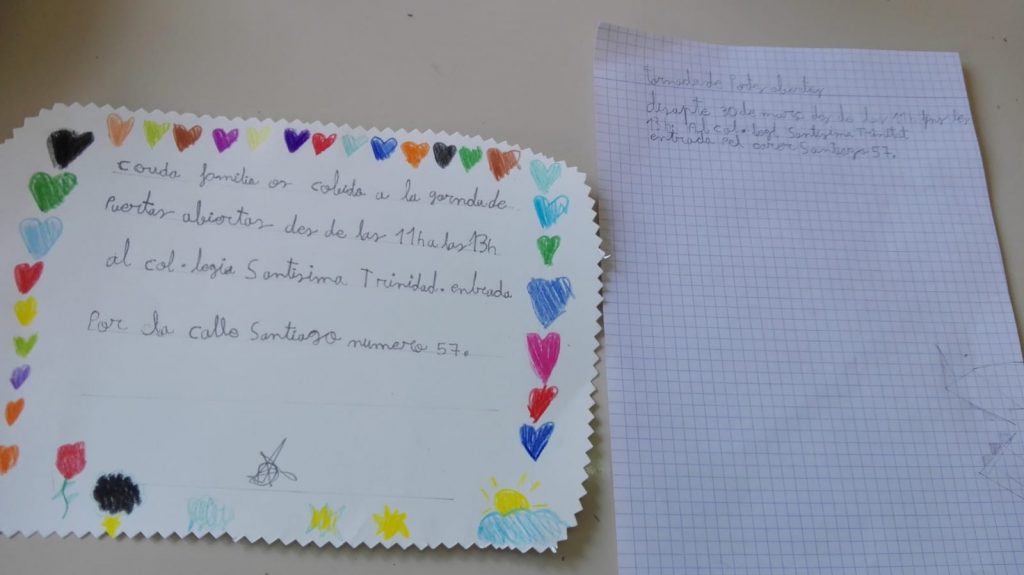 couda familia os colida a la gornda de
Puertas abiertas des de las 11h a las 13h
al col·legia Santisima Trinidad. entrada
Por la calle Santiago numero 57.
Jornada de Portes obertes
disapte 30 de març des de las 11h fins les
13h. Al col·legi Santisima Trinitat
entrada pel carer Santiago 57.